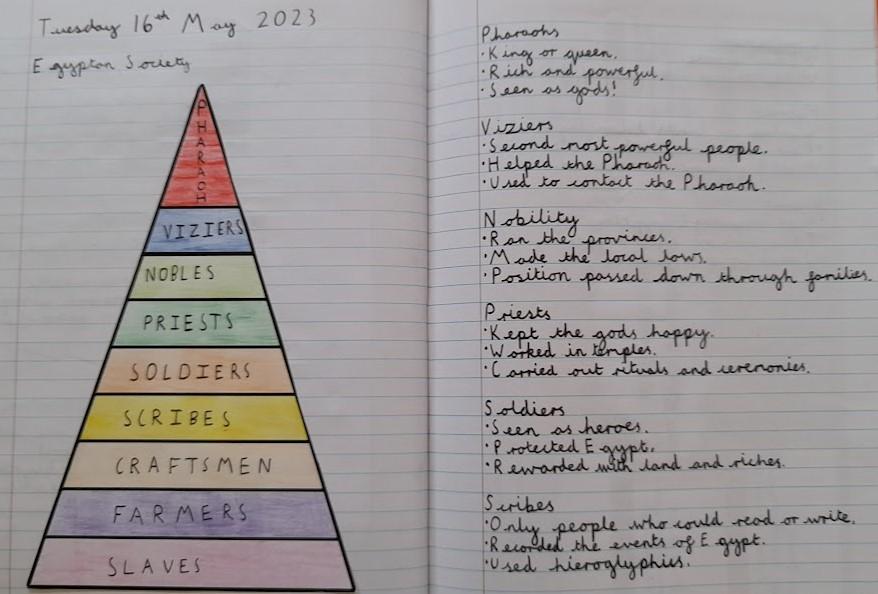 Tuesday 16th May 2023
Egyptan Society
PHARAOH
VIZIERS
NOBLES
PRIESTS
SOLDIERS
SCRIBES
CRAFTSMEN
FARMERS
SLAVES
Pharaohs
·King or queen.
·Rich and powerful.
·Seen as gods!
Viziers
·Second most powerful people.
·Helped the Pharaoh.
·Used to contact the Pharaoh.
Nobility
·Ran the provinces.
·Made the local laws.
·Position passed down through families.
Priests
·Kept the gods happy.
·Worked in temples.
·Carried out rituals and ceremonies.
Soldiers
·Seen as heroes.
·Protected Egypt.
·Rewarded with land and riches.
Scribes
·Only people who could read or write.
·Recorded the events of Egypt.
·Used hieroglyphics.